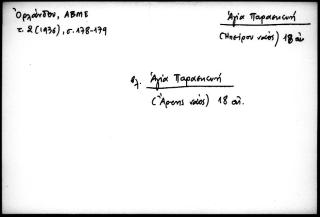 Ὀρλάνδου, ΑΒΜΕ
τ. 2 (1936), σ. 178-179
Ἁγία Παρασκευή
(Ἠπείρου ναός) 18 αἰ.
βλ. Ἁγία Παρασκευή
ναός) 18 αἰ.